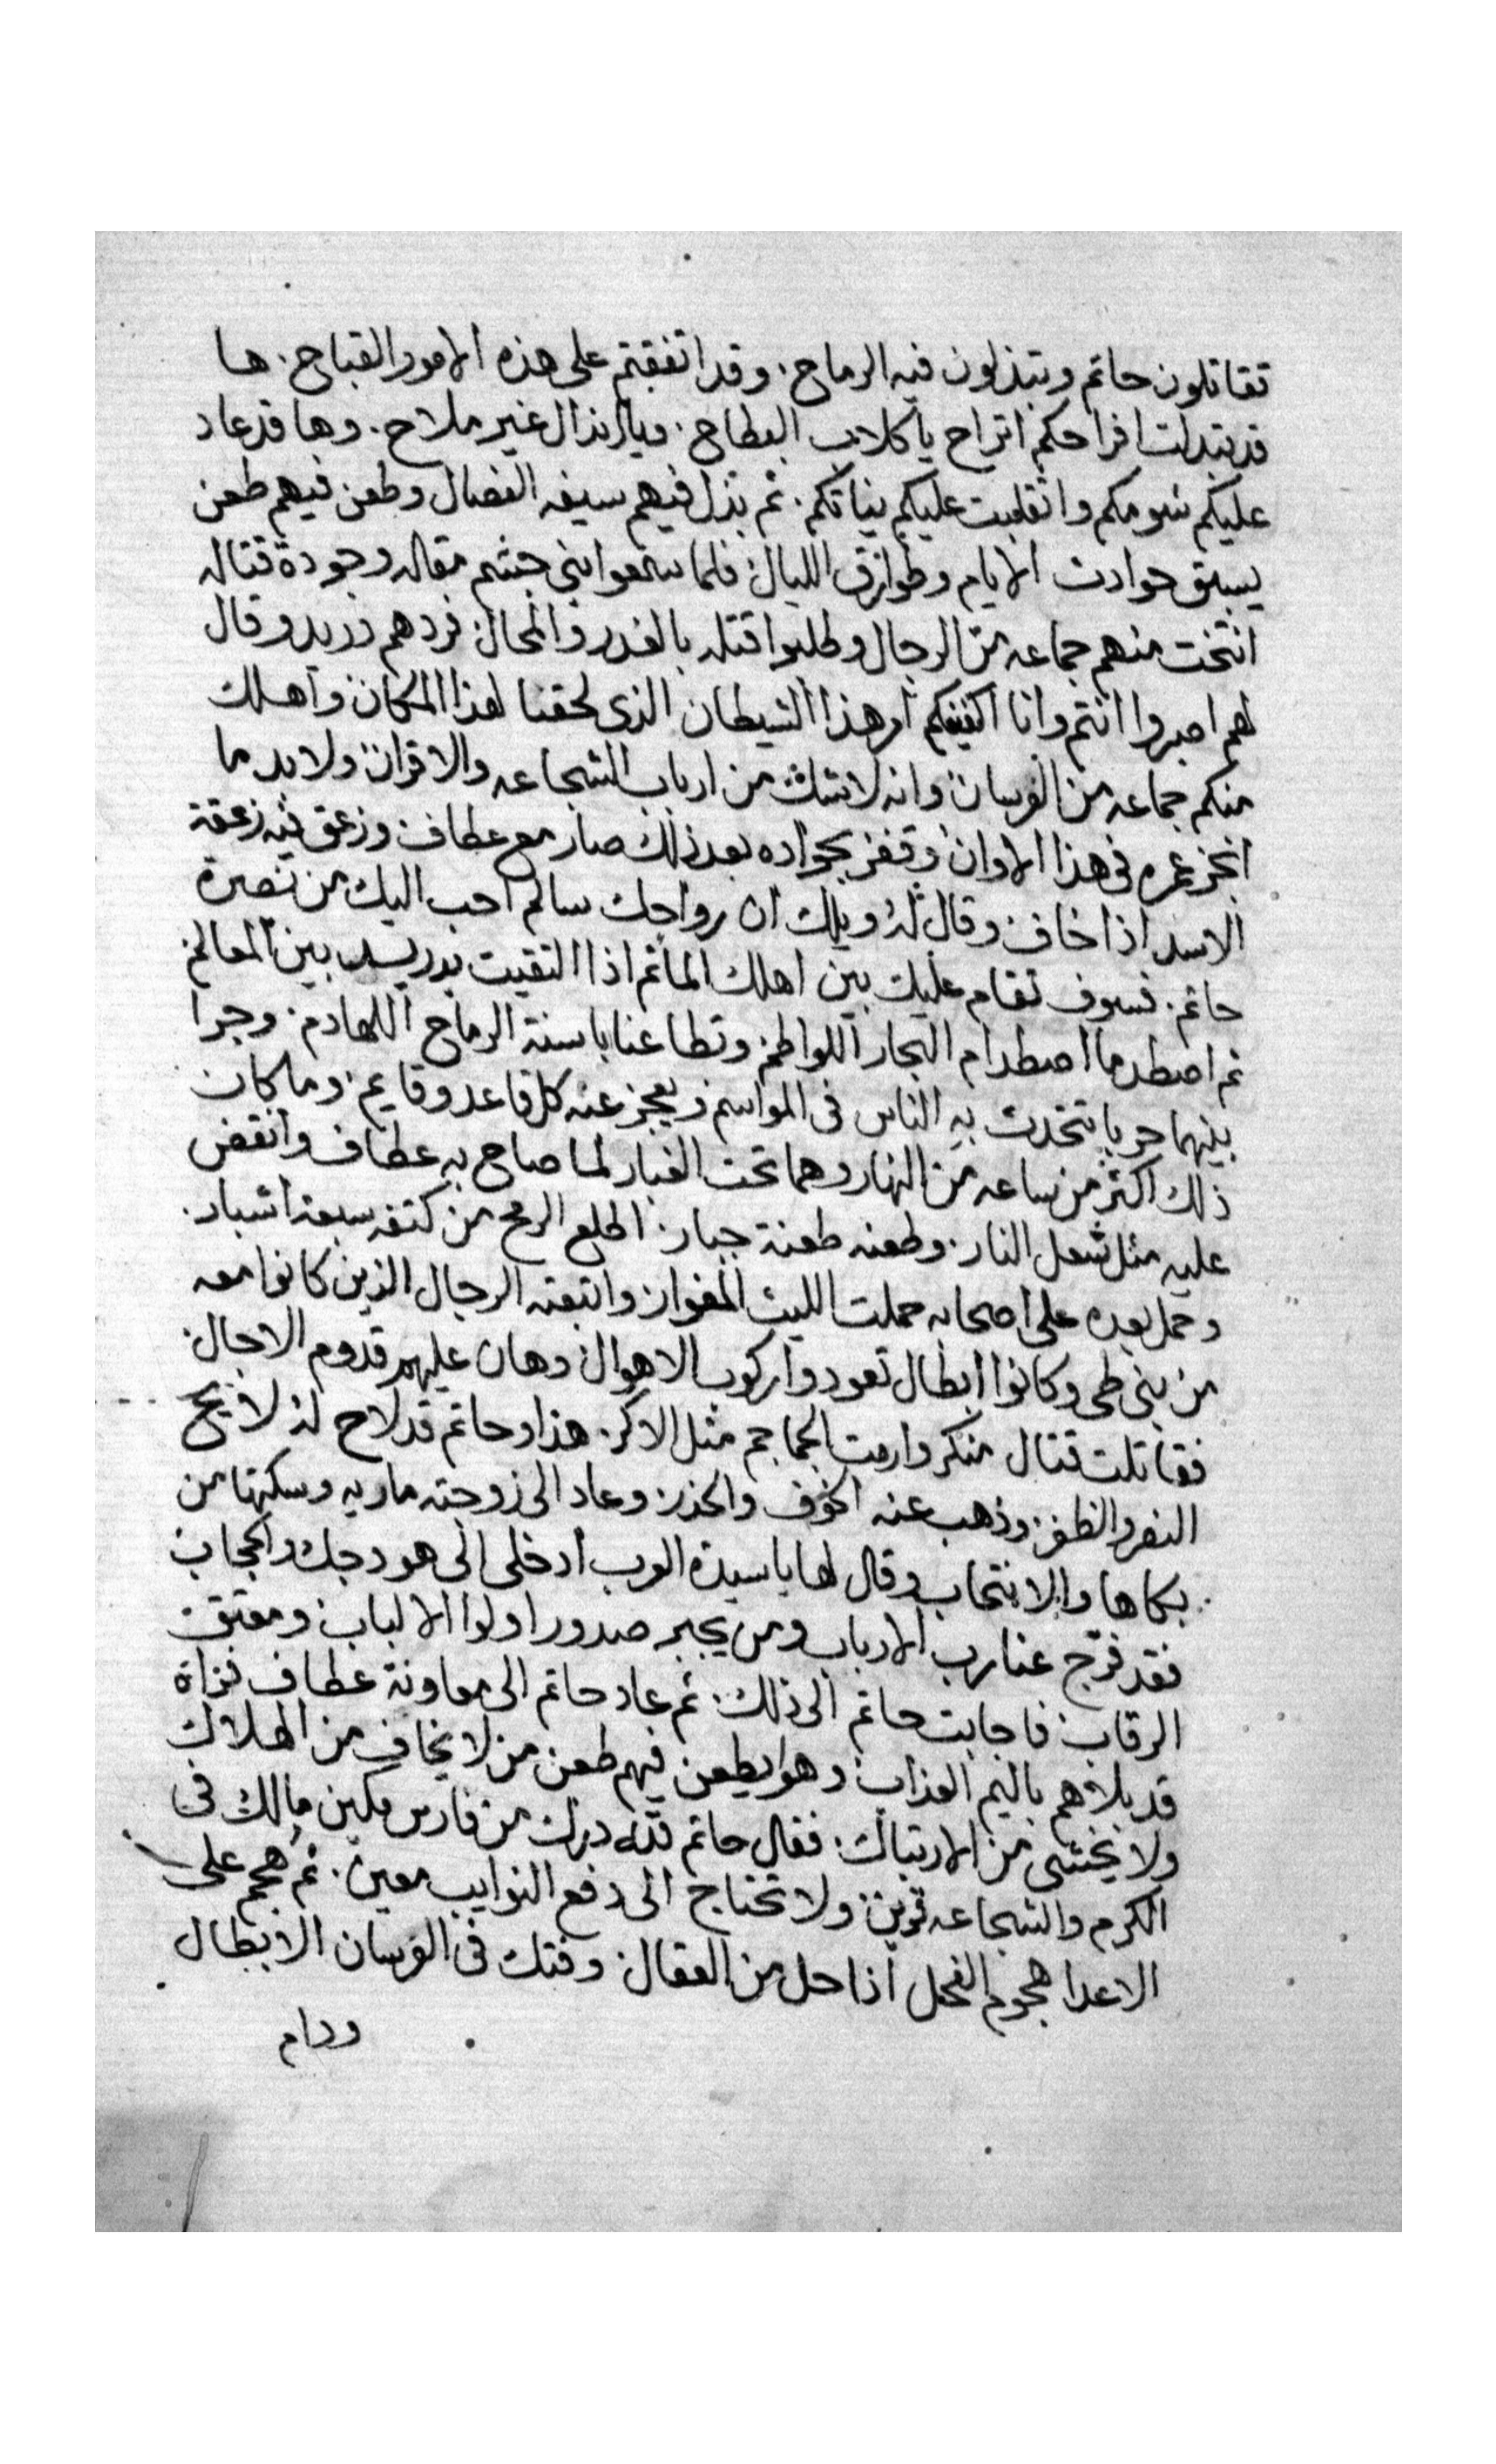 تقاتلون حاتم وتبذلون فيه الرماح. وقد اتفقتم على هذه الامور القباح. ها
قد تبدلت افراحكم اتراح يا كلاب البطاح. ويا انذال غير ملاح. وها قد عاد
عليكم شومكم وانقلبت عليكم نياتكم. ثم بذل فيهم سيفه الفصال وطعن فيهم طعن
يسبق حوادث الايام وطوارق الليال فلما سمعوا بني جشم مقاله وجودة قتاله
انتخت منهم جماعه من الرجال وطلبوا قتله بالغدر والمحال فردهم دريد وقال
لهم اصبروا انتم وانا اكفيكم امر هذا الشيطان الذي لحقنا لهذا المكان واهلك
منكم جماعه من الفرسان وانه لا شك من ارباب الشجاعه والاقران ولا بد ما
انجز عمره في هذا الاوان وقفز بجواده بعد ذلك صار مع عطاف وزعق فيه زعقة
الاسد اذا خاف وقال له ويلك ان رواحك سالم احب اليك من نصرة
حاتم. فسوف تقام عليك بين اهلك الماتم اذا التقيت بدريد بين المعالم
ثم اصطدما اصطدام البحار اللواطم وتطاعنا باسنة الرماح اللهادم. وجرا
بينهما حربا تتحدث به الناس في المواسم ويعجز عنه كل قاعد وقايم. وما كان
ذلك اكثر من ساعه من النهار وهما تحت الغبار لما صاح به عطاف وانقض
عليه مثل شعل النار. وطعنه طعنة جبار اطلع الرمح من كتفه سبعة اشبار.
وحمل بعده على اصحابه حملت الليث المغوار واتبعته الرجال الذين كانوا معه
من بني طي وكانوا ابطال تعودوا ركوب الاهوال وهان عليهم قدوم الاجال.
فقاتلت قتال منكر وارمت الجماجم مثل الاكر. هذا وحاتم قد لاح له لايح
النصر والظفر وذهب عنه الخوف والحذر وعاد الى زوجته ماريه وسكتها من
بكاها والانتحاب وقال لها يا سيدة العرب ادخلي الى هودجك والحجاب
فقد فرج عنا رب الارباب ومن يجبر صدور اولوا الالباب ومعتق
الرقاب فاجابت حاتم الى ذلك. ثم عاد حاتم الى معاونة عطاف فراه
قد بلاهم باليم العذاب وهو يطعن فيهم طعن من لا يخاف من الهلاك
ولا يخشى من الارتباك. فقال حاتم لله درك من فارس مكين مالك في
الكرم والشجاعه قرين ولا تحتاج الى دفع النوايب معين. ثم هجم على
الاعدا هجوم الفحل اذا حل من العقال. وفتك في الفرسان الابطال
ودام